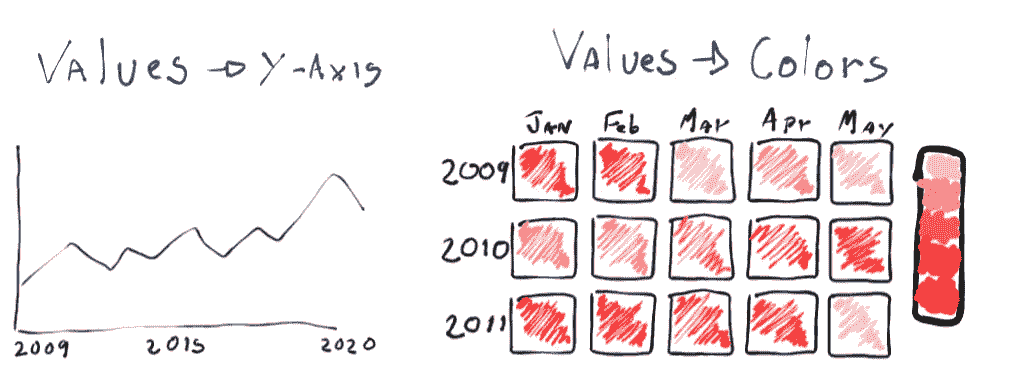 Values → Y-Axis
2009 2015 2020
Values → Colors
Jan Feb Mar Apr May
2009
2010
2011